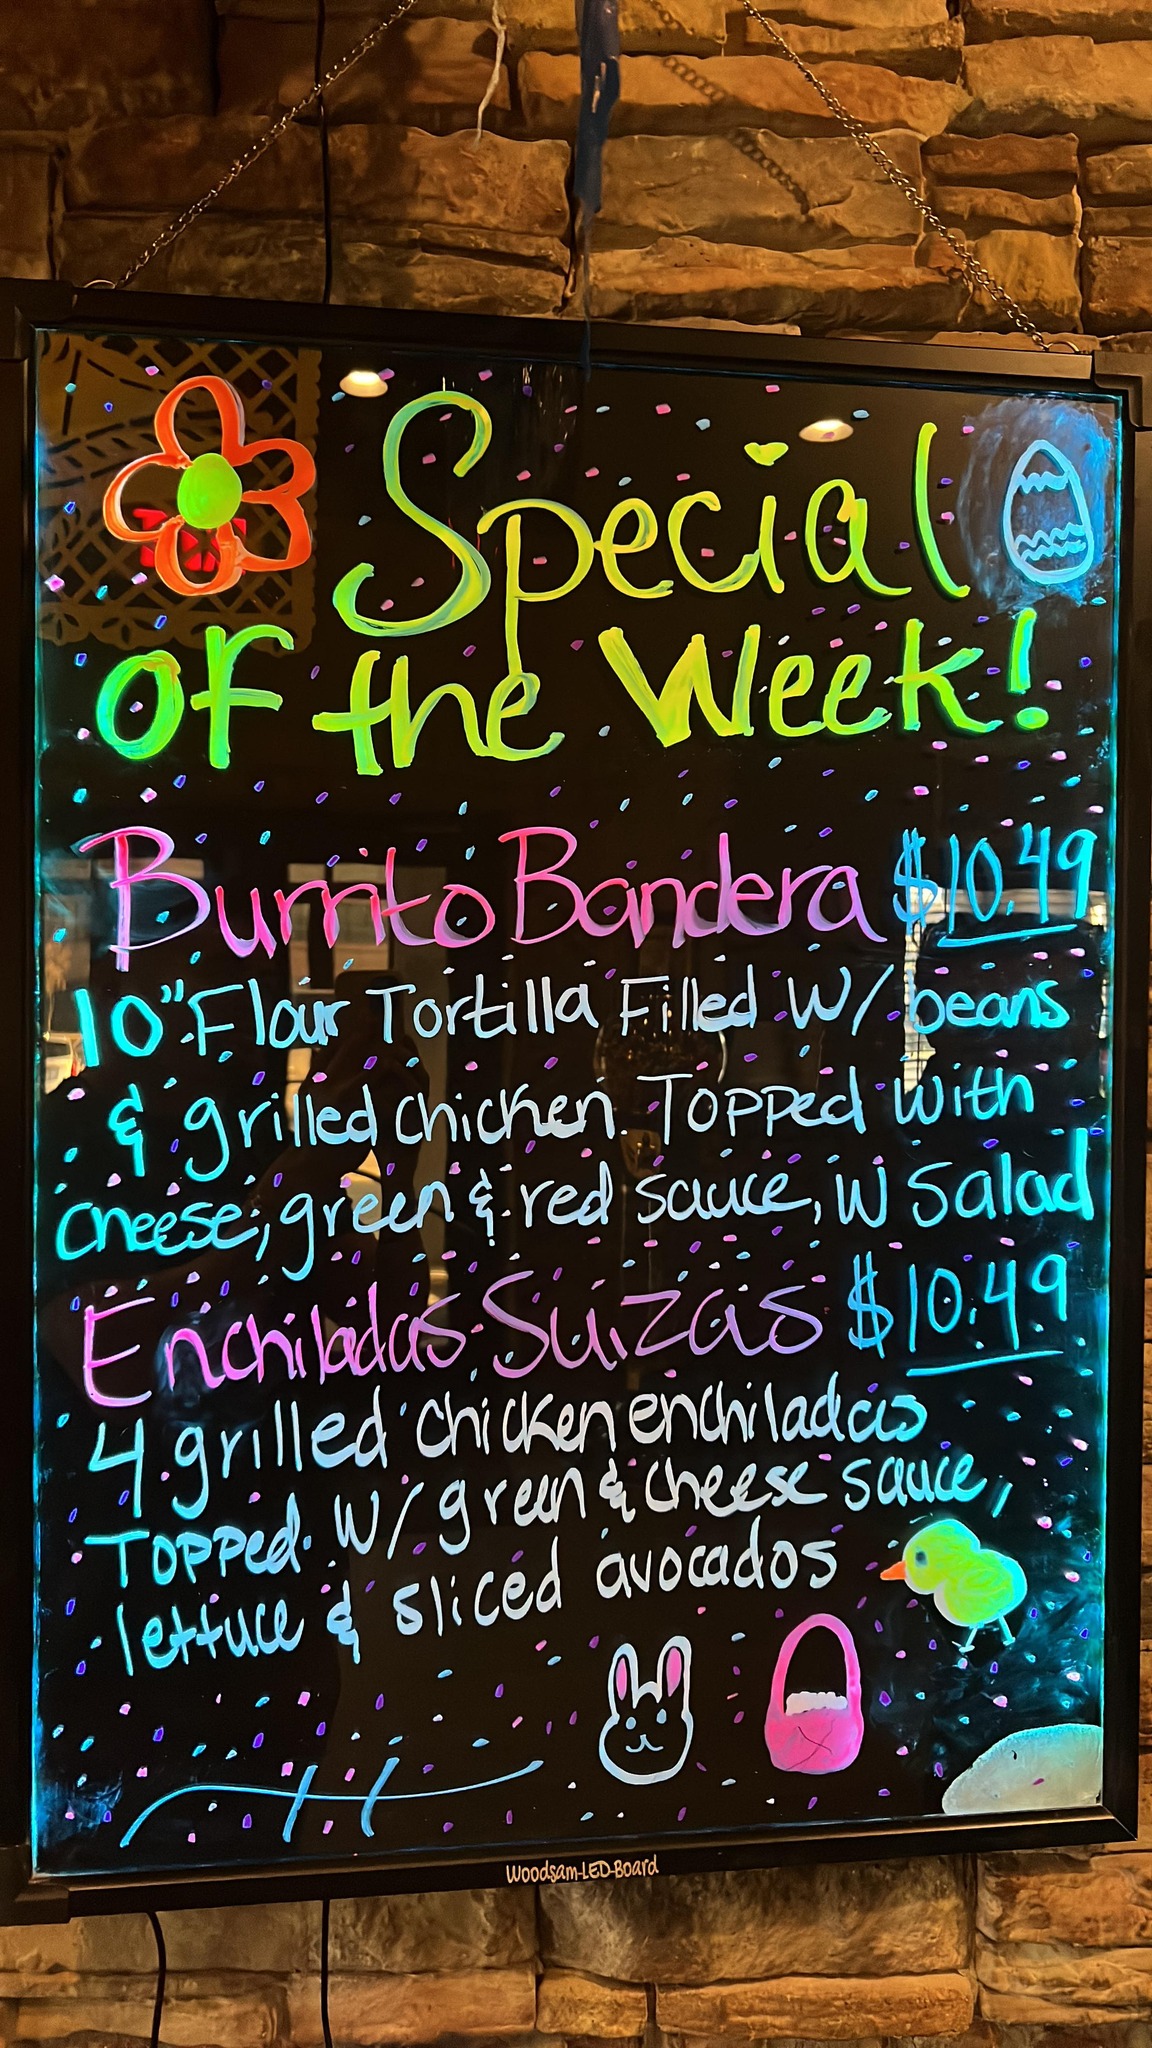 Special
of the Week!
Burrito Bandera $10.49
10" Flour Tortilla Filled W/ beans
& grilled chicken. Topped with
cheese, green & red sauce, W Salad
Enchiladas Suizas $10.49
4 grilled chicken enchiladas
Topped W/ green & cheese sauce,
lettuce & sliced avocados
Woodsam-LED-Board